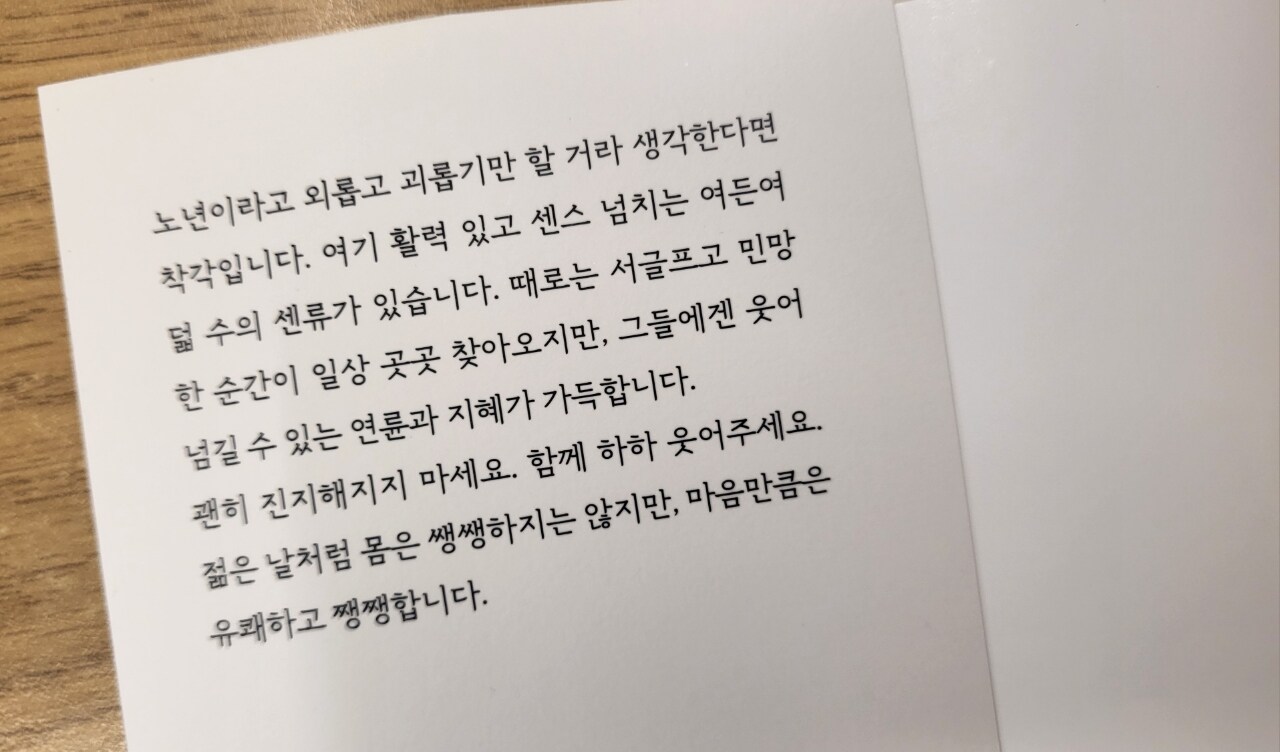 노년이라고 외롭고 괴롭기만 할 거라 생각한다면
착각입니다. 여기 활력 있고 센스 넘치는 여든여
덟 수의 센류가 있습니다. 때로는 서글프고 민망
한 순간이 일상 곳곳 찾아오지만, 그들에겐 웃어
넘길 수 있는 연륜과 지혜가 가득합니다.
괜히 진지해지지 마세요. 함께 하하 웃어주세요.
젊은 날처럼 몸은 쌩쌩하지는 않지만, 마음만큼은
유쾌하고 쨍쨍합니다.